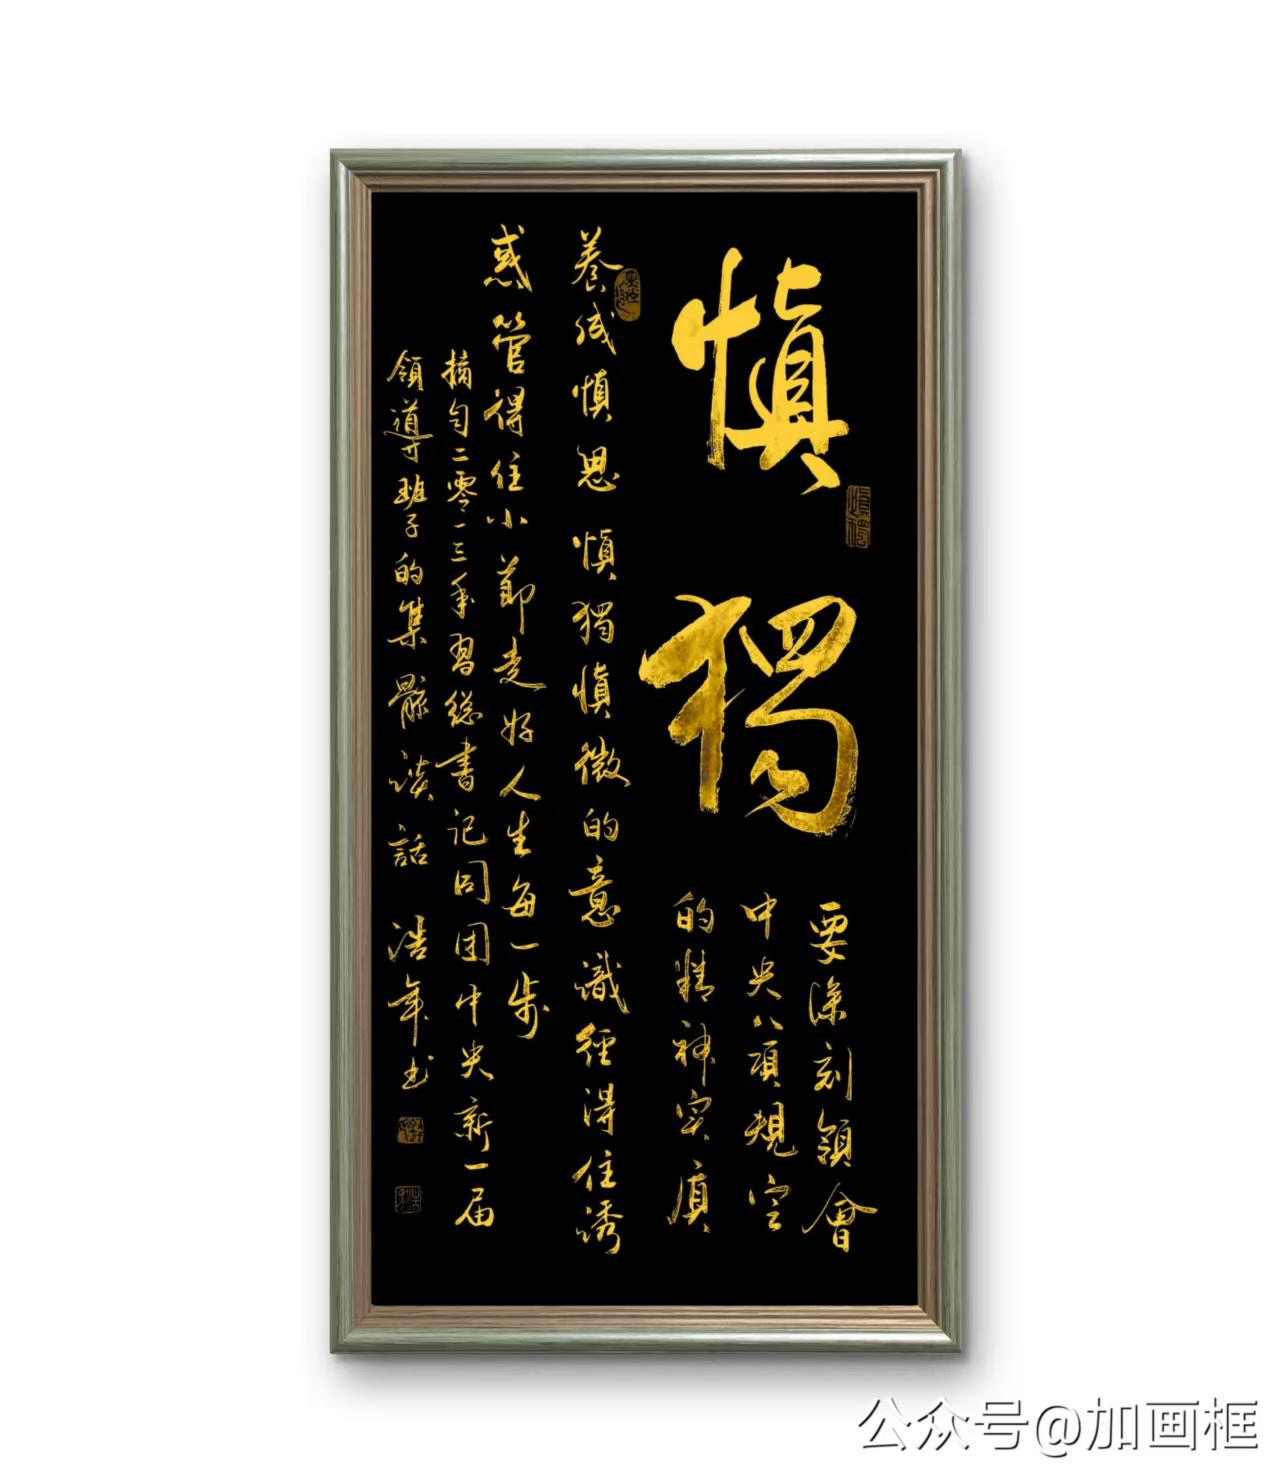 慎獨
要深刻領會
中央八項規定
的精神实质
養成慎思慎獨慎微的意識經得住誘
惑管得住小節走好人生每一步
摘句二零一三年習總書记同团中央新一届
領導班子的集體談話 浩年书
公众号@加画框